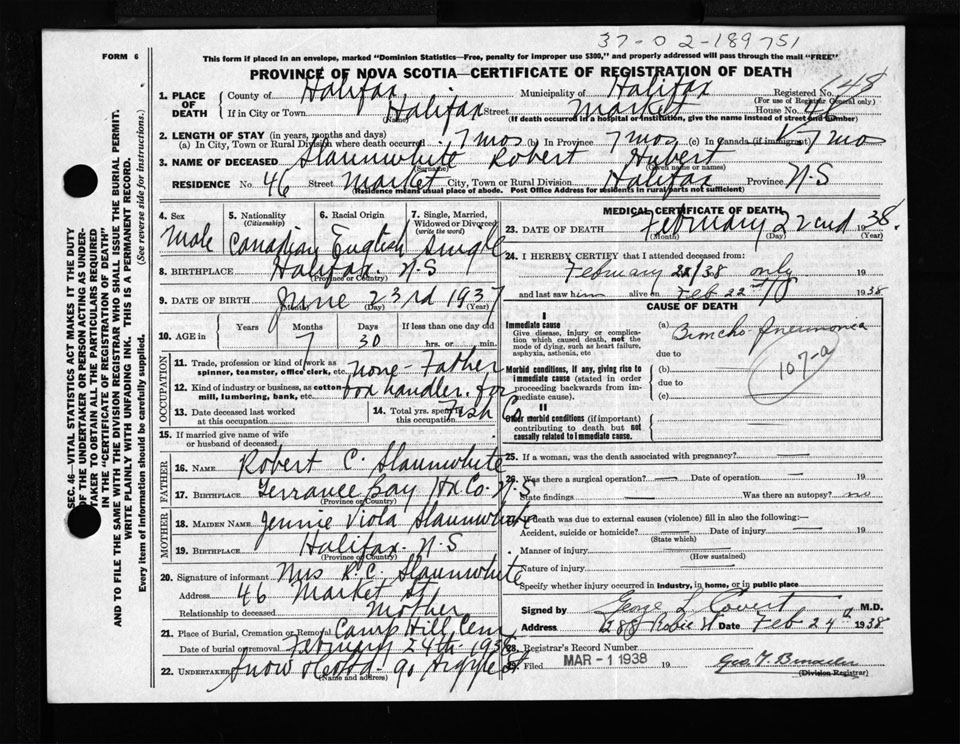 37-0 2-189751
FORM 6
This form if placed in an envelope, marked "Dominion Statistics—Free, penalty for improper use $300," and properly addressed will pass through the mail "FREE"
PROVINCE OF NOVA SCOTIA—CERTIFICATE OF REGISTRATION OF DEATH
SEC. 46—VITAL STATISTICS ACT MAKES IT THE DUTY
OF THE UNDERTAKER OR PERSON ACTING AS UNDER-
TAKER TO OBTAIN ALL THE PARTICULARS REQUIRED
IN THE "CERTIFICATE OF REGISTRATION OF DEATH"
AND TO FILE THE SAME WITH THE DIVISION REGISTRAR WHO SHALL ISSUE THE BURIAL PERMIT.
WRITE PLAINLY WITH UNFADING INK. THIS IS A PERMANENT RECORD.
Every item of information should be carefully supplied. (See reverse side for instructions.)
1. PLACE OF DEATH
County of Halifax Municipality of Halifax Registered No. 148
(For use of Registrar General only)
If in City or Town Halifax Street Market House No. 46
(Name) (If death occurred in a hospital or institution, give the name instead of street and number)
2. LENGTH OF STAY (in years, months and days)
(a) In City, Town or Rural Division where death occurred 7 mos (b) In Province 7 mos (c) In Canada (if immigrant) 7 mos
3. NAME OF DECEASED Slaunwhite Robert Hubert
(Surname) (Given name or names)
RESIDENCE No. 46 Street Market City, Town or Rural Division Halifax Province N.S
(Residence means usual place of abode. Post Office Address for residents in rural parts not sufficient)
4. Sex 5. Nationality (Citizenship) 6. Racial Origin 7. Single, Married, Widowed or Divorced (write the word)
Male Canadian English Single
8. BIRTHPLACE Halifax. N.S
(Province or Country)
9. DATE OF BIRTH June 23rd 1937
(Month) (Day) (Year)
10. AGE in Years Months Days If less than one day old
7 30 hrs. or min.
OCCUPATION
11. Trade, profession or kind of work as none - Father
spinner, teamster, office clerk, etc.
12. Kind of industry or business, as cotton mill, lumbering, bank, etc. box handler. for
13. Date deceased last worked at this occupation
14. Total yrs. spent in this occupation Fish Co
15. If married give name of wife or husband of deceased
FATHER
16. NAME Robert C. Slaunwhite
17. BIRTHPLACE Terrance Bay Hx Co. N.S
(Province or Country)
MOTHER
18. MAIDEN NAME Jennie Viola Slaunwhite
19. BIRTHPLACE Halifax. N.S
(Province or Country)
20. Signature of informant Mrs R.C. Slaunwhite
Address 46 Market St
Relationship to deceased Mother
21. Place of Burial, Cremation or Removal Camp Hill Cem
Date of burial or removal February 24th 1938
22. UNDERTAKER Snow & Co Ltd. 90 Argyle St
(Name and address)
MEDICAL CERTIFICATE OF DEATH
23. DATE OF DEATH February 22nd 1938.
(Month) (Day) (Year)
24. I HEREBY CERTIFY that I attended deceased from:
February 22/38 only 19
and last saw him alive on Feb 22nd 1938
CAUSE OF DEATH
I
Immediate cause
Give disease, injury or complication which caused death, not the mode of dying, such as heart failure, asphyxia, asthenia, etc
(a) Broncho-Pneumonia
due to
Morbid conditions, if any, giving rise to immediate cause (stated in order proceeding backwards from immediate cause).
(b)
due to
(c)
107-a
II
Other morbid conditions (if important) contributing to death but not causally related to immediate cause.
25. If a woman, was the death associated with pregnancy? —
26. Was there a surgical operation? — Date of operation — 19
State findings — Was there an autopsy? no
27. If death was due to external causes (violence) fill in also the following:—
Accident, suicide or homicide? — Date of injury — 19
(State which)
Manner of injury
(How sustained)
Nature of injury —
Specify whether injury occurred in industry, in home, or in public place
Signed by George L Covert M.D.
Address 288 Robie St Date Feb 24th 1938
28. Registrar's Record Number
29. Filed MAR - 1 1938
(Division Registrar)